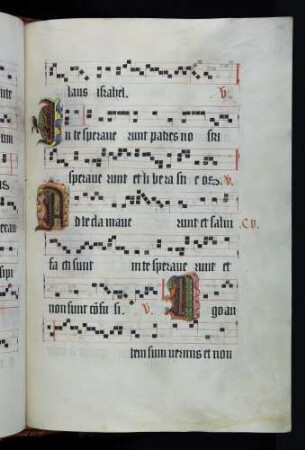 laus israhel. V.
In te speraue runt patres no stri
speraue runt et li bera sti e os. V.
Ad te clamaue runt et salui C V.
fa cti sunt in te speraue runt et
non sunt cōfu si. V. Ego au
tem sum uermis et non